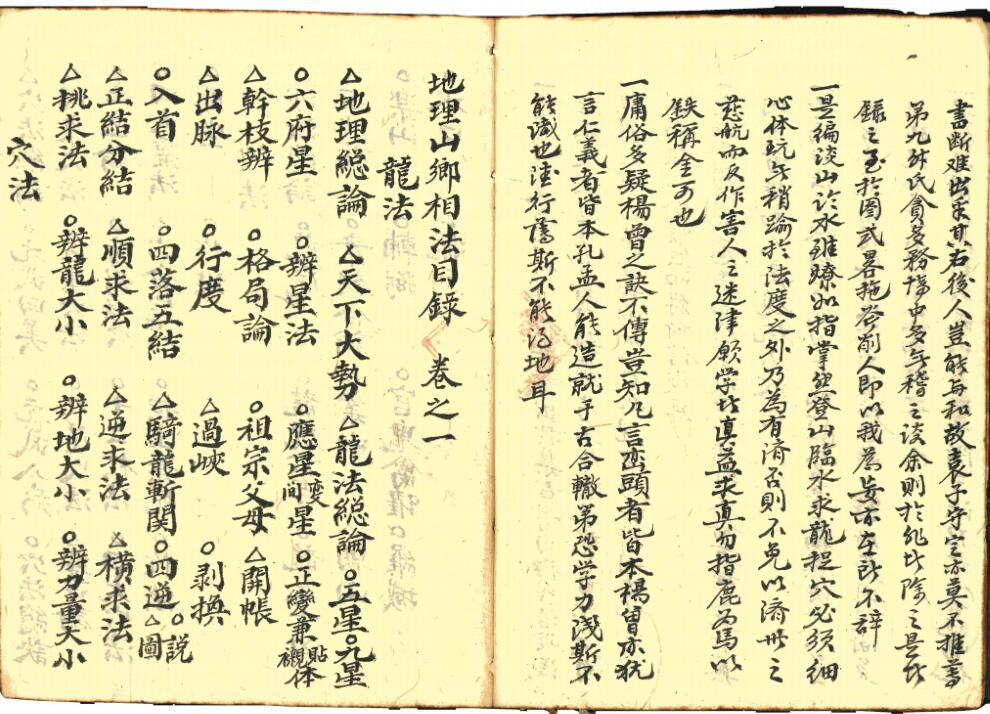 書斷难出乎其右後人豈能与和故袁子守定亦莫不推尊
第九升氏貪多務博中多無稽之談余則於非此除之是此
錄之至於圖式畧拖谷削人即以我為妄亦在所不辞
一是編談山於水雖瞭如指掌然登山臨水求龍捉穴必須細
心体玩無稍踰於法度之外乃為有濟否則不免以濟世之
慈航而反作害人之迷津願学此真益求真勿指鹿為馬以
鉄稱金可也
一庸俗多疑楊曾之訣不傳豈知凡言巒頭者皆本楊曾亦犹
言仁義者皆本孔孟人能造就于古合轍弟恐学力淺斯不
能識也陰行薄斯不能得地耳
地理山鄉相法目錄 卷之一
龍法
△地理総論 △天下大勢 △龍法総論 ○五星○九星
○六府星 ○辨星法 ○應星 变間星 ○正變兼 貼体襯
△幹枝辨 ○格局論 ○祖宗父母 △開帳
△出脉 ○行度 △過峽 ○剥換
○入首 ○四落五結 △騎龍斬関 ○四逆 ○説△圖
△正結分結 △順求法 △逆求法 △橫求法
△挑求法 ○辨龍大小 ○辨地大小 ○辨力量大小
穴法